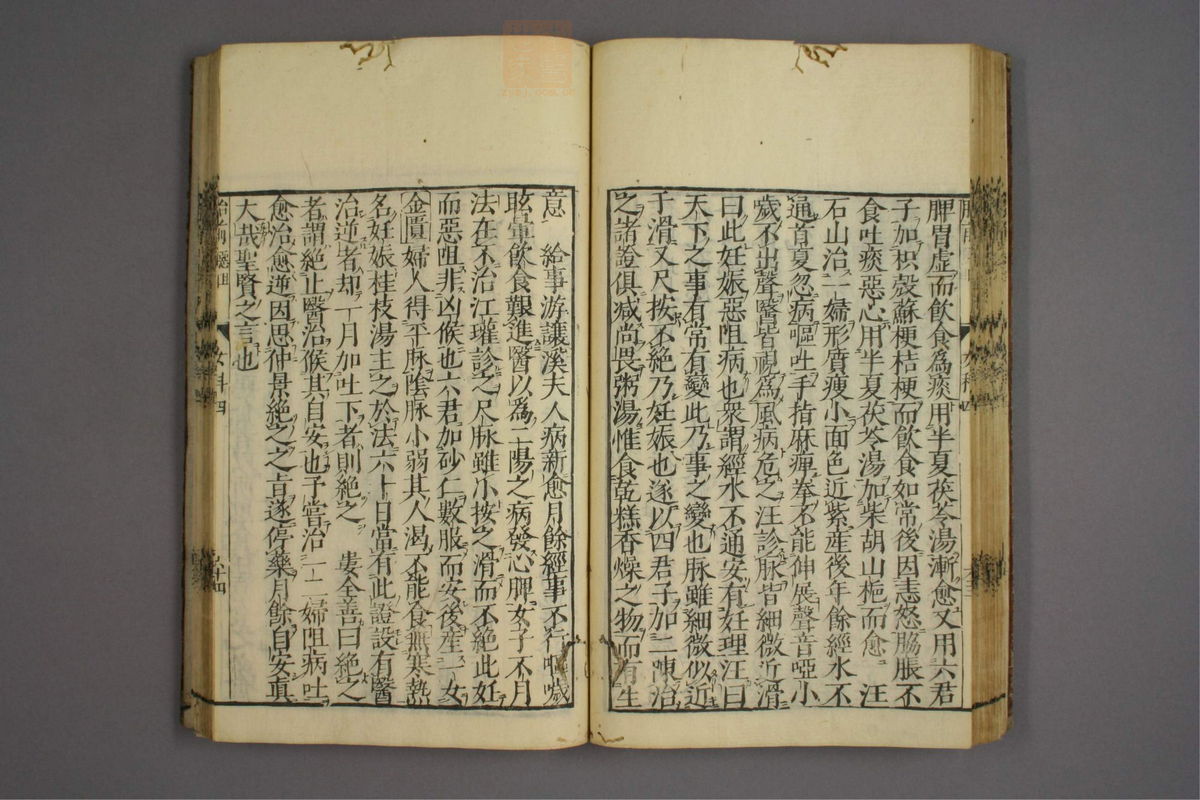 脾胃虛而飲食為痰用半夏茯苓湯漸愈又用六君
子加枳殼蘇梗桔梗而飲食如常後因恚怒脇脹不
食吐痰惡心用半夏茯苓湯加柴胡山梔而愈 汪
石山治一婦形質瘦小面色近紫產後年餘經水不
通首夏忽病嘔吐手指麻痺拳不能伸展聲音啞小
噦不出聲醫皆視為風病危之汪診脉皆細微近滑
曰此妊娠惡阻病也衆謂經水不通安有妊理汪曰
天下之事有常有變此乃事之變也脉雖細微似近
于滑又尺按不絕乃妊娠也遂以四君子加二陳治
之諸證俱減尚畏粥湯惟食乾糕香燥之物而有生
意 給事游讓溪夫人病新愈月餘經事不行嘔噦
眩暈飲食艱進醫以為二陽之病發心脾女子不月
法在不治江瓘診之尺脉雖小按之滑而不絕此妊
而惡阻非凶候也六君加砂仁數服而安後產一女
金匱婦人得平脉陰脉小弱其人渴不能食無寒熱
名妊娠桂枝湯主之於法六十日當有此證設有醫
治逆者却一月加吐下者則絕之 婁全善曰絕之
者謂絕止醫治候其自安也予嘗治一二婦阻病吐
愈治愈逆因思仲景絕之之旨遂停藥月餘自安真
大哉聖賢之言也
女科四